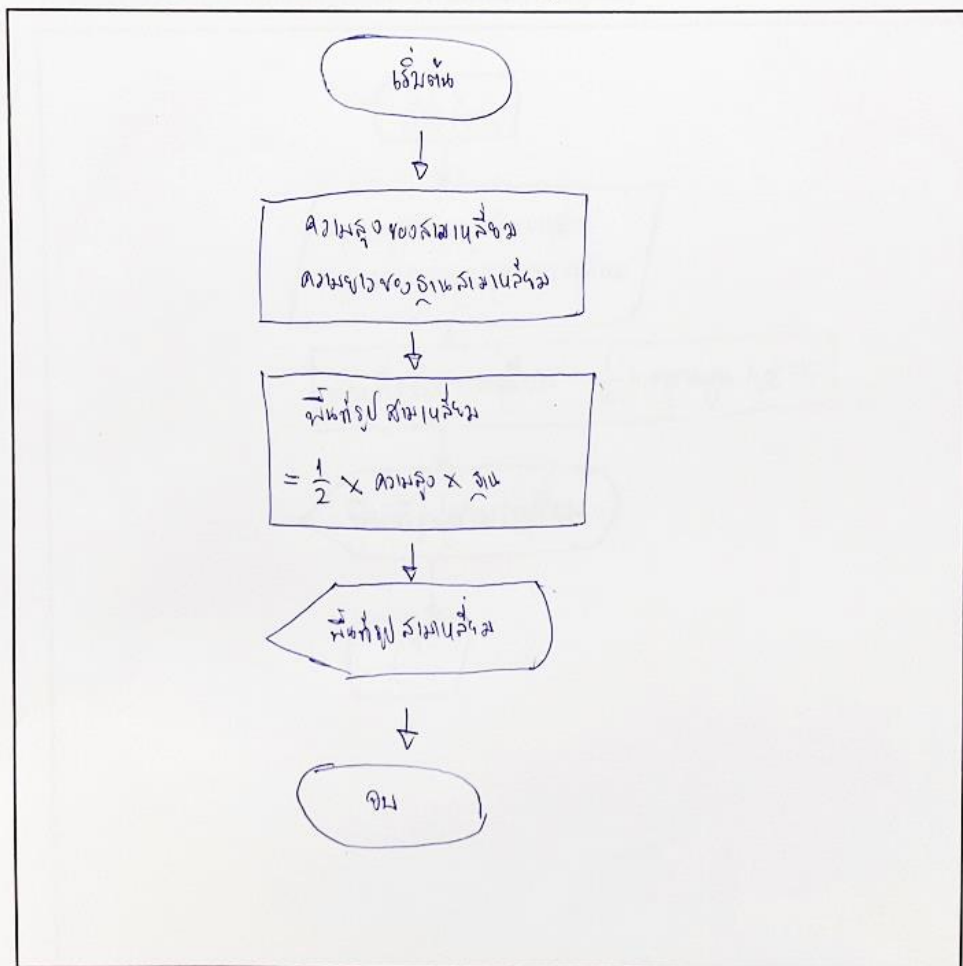 เริ่มต้น
ความสูงของสามเหลี่ยม
ความยาวของฐานสามเหลี่ยม
พื้นที่รูปสามเหลี่ยม
= 1/2 × ความสูง × ฐาน
พื้นที่รูปสามเหลี่ยม
จบ